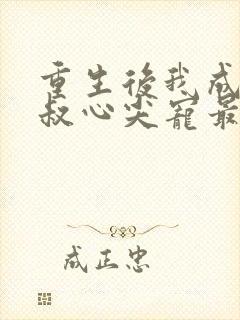 重生後我成
叔心尖寵最
成正忠